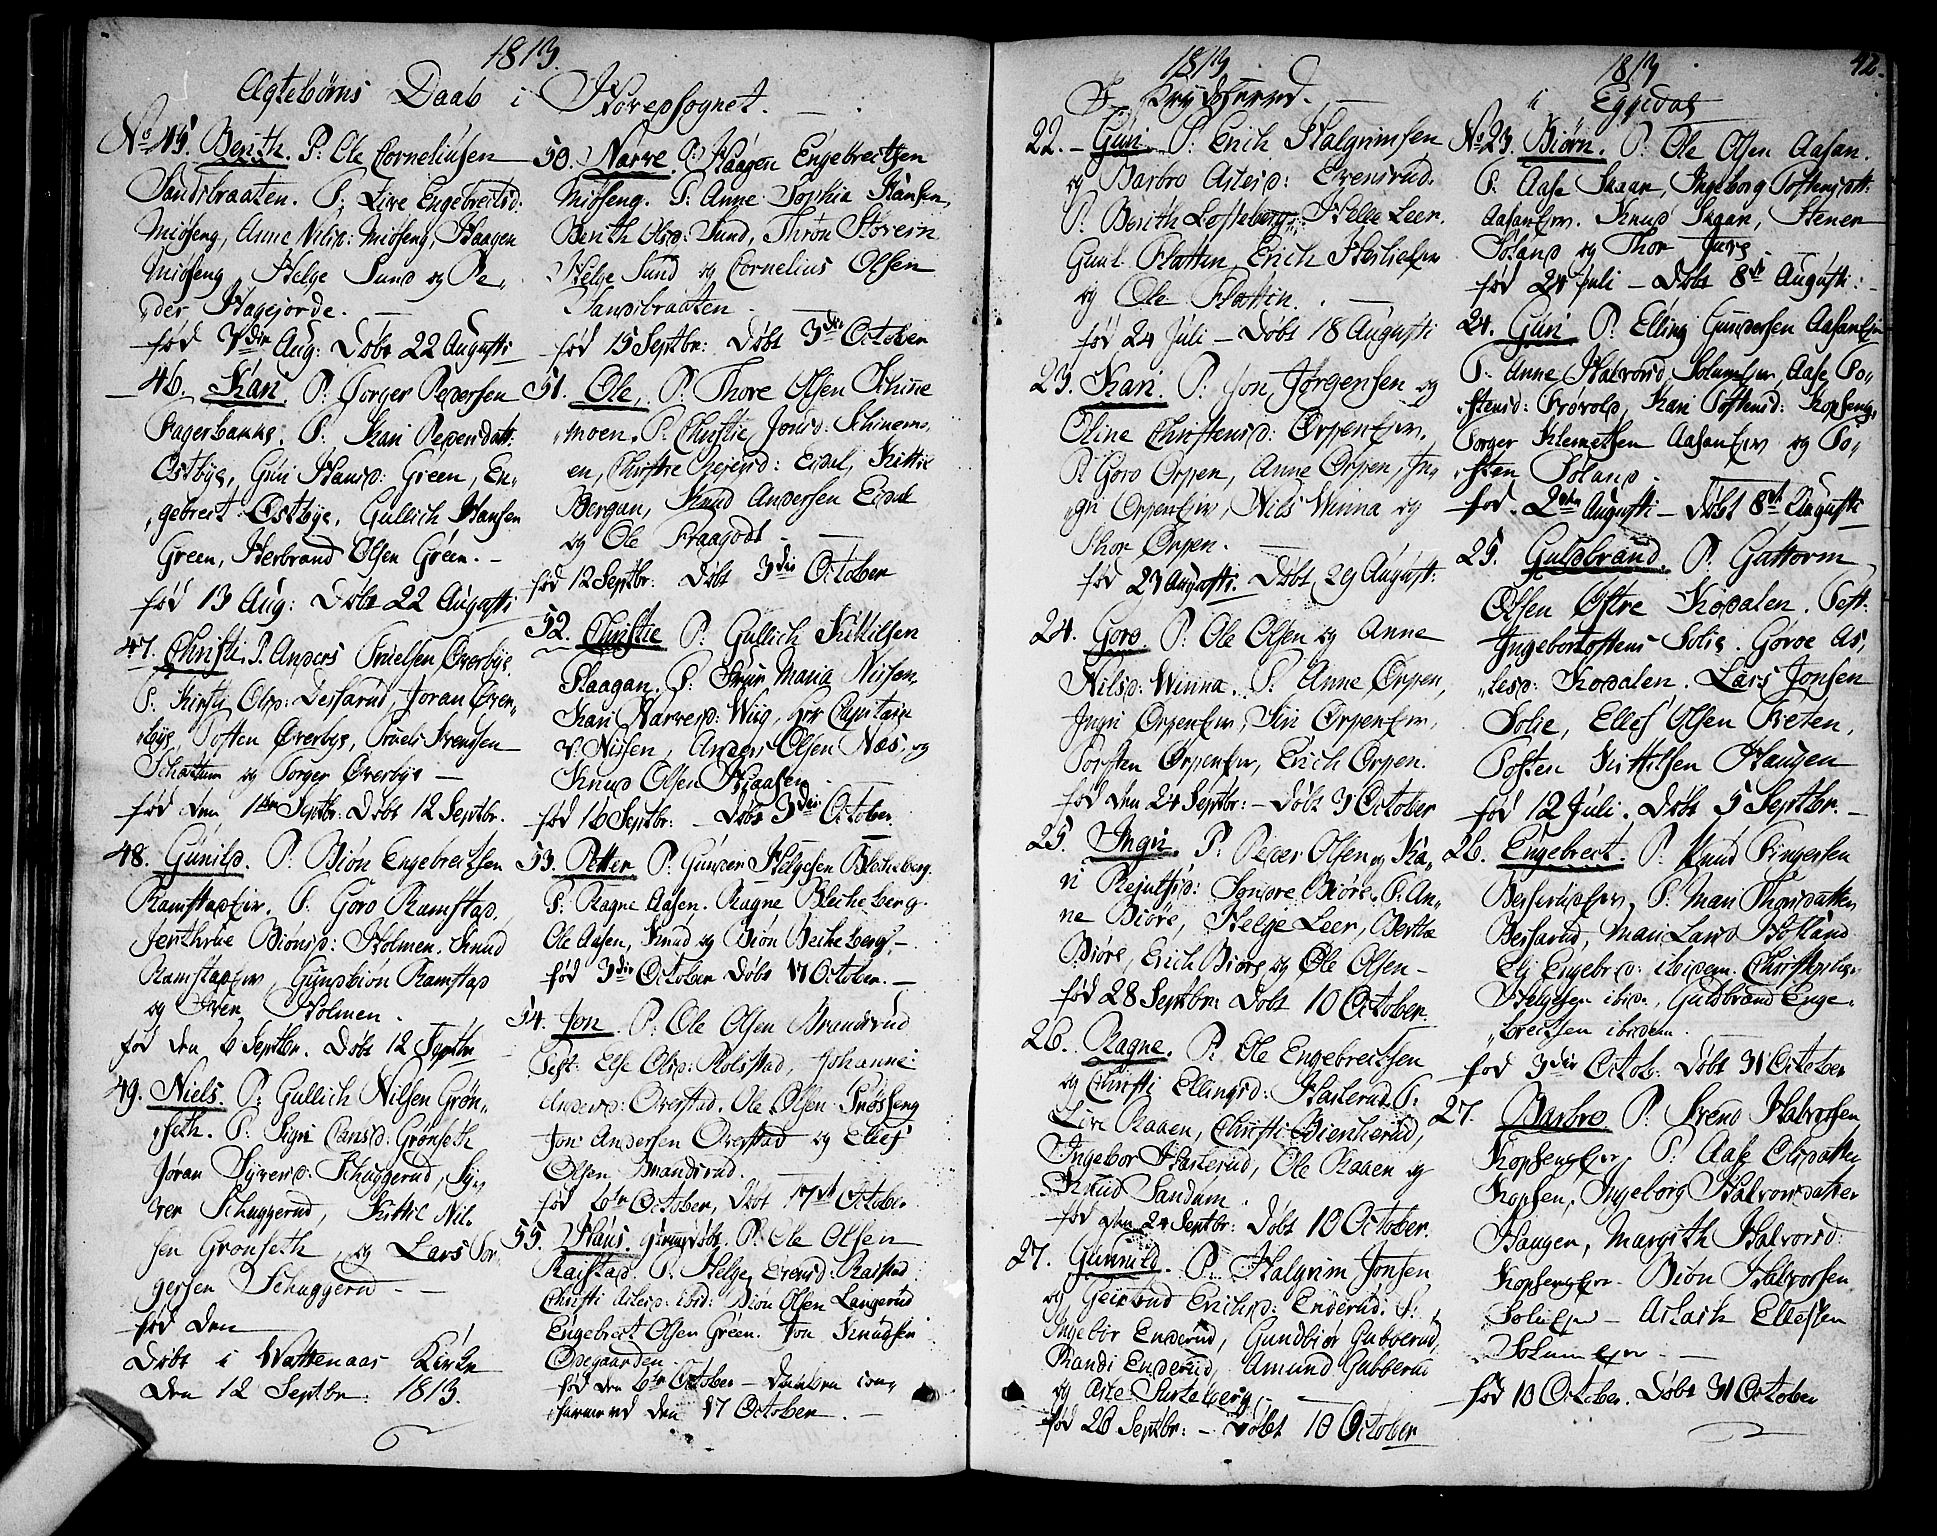 1813.
Ægtebørns Daab i Hovedsognet.
No 45. Berith. P: Ole Corneliusen
Sandsbraaten. P: Live Engebretsd:
Miøseng, Anne Nilsd: Miøseng, Haagen
Miøseng, Helge Sund og Pe-
der Hagejorde.
fød 7de Aug: Døbt 22 Augusti
46. Kari. P: Torger Pedersen
Fagerbakke. P: Kari Pedersdatt:
Østbye, Guri Hansd: Green, En-
gebret Østbye, Gullich Hansen
Green, Herbrand Olsen Green. -
fød 13 Aug: Døbt 22 Augusti
47. Christi. P. Anders Truelsen Øverbye.
P. Kirsti Olsd: Joran Øver-
bye, Tosten Øverbye, Truels Svendsen
og Torger Øverbye -
fød den 1ste Septbr: Døbt 12 Septbr.
48. Gunild. P: Biøn Engebretsen
Ramstadejer. P: Goro Ramstad,
Jerthrue Biønsd: Holmen. Knud
Ramstadejer, Gundbion Ramstad
og Iver Holmen.
fød den 6 Septbr. Døbt 12 Septbr
49. Niels. P: Gullich Nilsen Grøn-
seth. P: Sigri Grønseth
Jøran Syversd: Skuggerud, Sy-
ver Skuggerud, Kittil Nil-
sen Grønseth, og Lars Tor-
gersen Skuggerud -
fød den
Døbt i Wattenaas Kirke
den 12 Septbr: 1813.
50. Narve. P: Haagen Engebretsen
Miøseng. P: Anne Sophia Hansen,
Berith Olsd: Sund, Thron Støvern
Helge Sund og Cornelius Olsen
Sandsbraaten
fød 15 Septbr: Døbt 3die October
51. Ole. P. Thore Olsen Skine
moen. P. Christie Jonsd: Skinemo-
en, Christie Eidal, Kittil
Bergan, Knud Andersen Eidal
og Ole Fraagodt. -
fød 12 Septbr: Døbt 3die October
52. Christie P: Gullich Kittilsen
Flaagan. P: Maria Nissen,
Kari Narvesd: Wiig, Hr Capitain
v: Nissen, Anders Olsen Næs, og
Knud Olsen Haasen -
fød 16 Septbr: - Døbt 3die October.
53. Petter P: Gunder Helgesen Blekeberg.
P: Ragne Aasen. Ragne Blekeberg.
Ole Aasen, Knud og Biøn Blekeberg. -
fød 3die October Døbt 17 October. -
54. Jon. P: Ole Olsen Brandsrud
Test: Else Olsd: Rolstad, Johanne
Andersd: Overstad. Ole Olsen Snøseng
Jon Andersen Overstad og Ellef
Olsen Brandsrud. -
fød 6te October, Døbt 17de October
55. Hans. hjemmedøbt. P: Ole Olsen
Raistad. P: Helge Evensd: Raistad
Christi Aslesd: ibid: Biøn Olsen Langerud
Engebret Olsen Green. Jon Knudsen
Opegaarden
fød den 6te October - Daaben con-
firmered den 17 October. -
1813
I Krydsherred.
22. - Guri. P: Erich Halgrimsen
og Barbro Aslesd: Evensrud.
P: Berith Loffsberg, Helge Leer.
Gunl. Flatten, Erich
og Ole Flattin. -
fød 24 Juli - Døbt 18 Augusti
23. Kari P: Jon Jørgensen og
Oline Christensd: Ørpenejer.
P. Goro Ørpen, Anne Ørpen, In-
gri Ørpenejer, Nils Winna og
Thor Ørpen.
fød 23 Augusti. Døbt 29 August:
24. Goro P: Ole Olsen og Anne
Nilsd: Winna. P: Anne Ørpen,
Ingri Ørpenejer, Siri Ørpenejer,
Torsten Ørpenejer, Erich Ørpen.
fød den 24 Septbr: - Døbt 3 October
25. Ingri. P: Peder Olsen og Ka-
ri Biøre. P: An-
ne Biøre, Helge Leer, Berthe
Biøre, Erich Biøre og Ole Olsen -
fød 28 Septbr: Døbt 10 October.
26. Ragne. P. Ole Engebretsen
og Christi Ellingsd: Haslerud. P:
Live Raaen, Christi Bienkerud,
Ingebor Haslerud, Ole Raaen og
Knud Sandum.
fød den 24 Septbr: Døbt 10 October.
27. Gunnild. P. Halgrim Jonsen
og Geirtrud Erichsd: Enderud: P:
Ingebor Enderud, Gundbiør Gubberud,
Randi Enderud, Amund Gubberud
og Asle
fød 26 Septbr: - Døbt 10 October
1813
42.
i Eggedal
No 23. Biørn. P. Ole Olsen Aasan.
P: Aase Skaar, Ingeborg Tostensdatt:
Aasanejer. Knud Skaar, Stener
Soland og Thor
fød 24 Juli - Døbt 8de Augusti: -
24. Guri P. Elling Gundersen Aasanejer
P. Anne Halvorsd, Aase To-
stensd: Frøvold, Kari Tostensd: Kopseng,
Torger Klemetsen Aasanejer og To-
sten Soland.
fød. 2den Augusti - Døbt 8de Augusti
25. Guldbrand. P. Guttorm
Olsen Øftre Kodalen. Test.
Ingebor Tostens Solie. Gøroe As-
lesd: Kodalen. Lars Jonsen
Solie, Ellef Olsen Treten,
Tosten Kittilsen Haugen
fød 12 Juli. Døbt 5 Septbr. -
26. Engebret. P. Knud Fingersen
P: Mari Thorsdatter
Berserud, Mari Larsd Hofland
Eli Engebrd: ibidem. Christopher
Helgesen ibid., Guldbrand Enge-
bretsen ibidem.
fød 3die Octob: Døbt 31 October
27. Barbro P. Svend Halvorsen
Kopsengejer. P: Aase Olsdatter
Kopsen, Ingeborg Halvorsdatter
Haugen, Margith Halvorsd:
Kopsengejer. Biøn Halvorsen
- Aslach Ellefsen
fød 10 October. Døbt 31 October